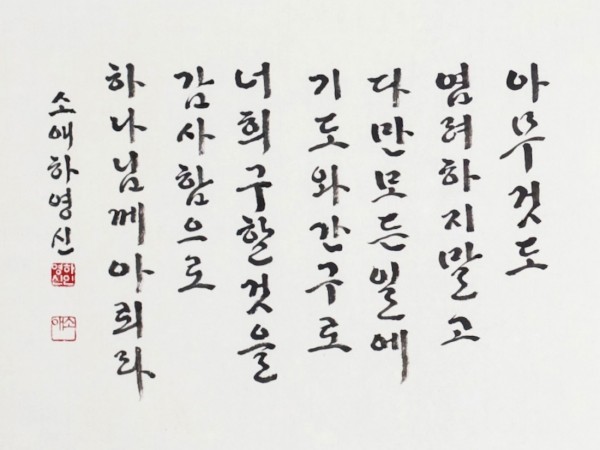 아무것도
염려하지말고
다만모든일에
기도와간구로
너희구할것을
감사함으로
하나님께아뢰라
소애하영신
하인
영신
소
애